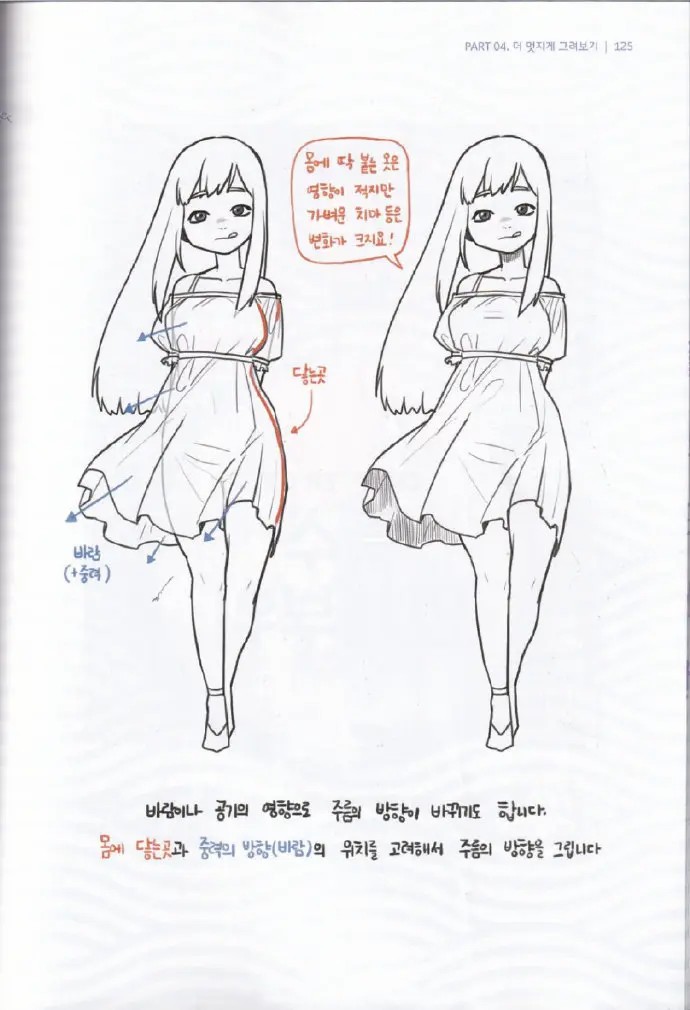 PART 04. 더 멋지게 그려보기 | 125
몸에 딱 붙는 옷은
영향이 적지만
가벼운 치마 등은
변화가 크지요!
닿는곳
바람
(+중력)
바람이나 공기의 영향으로 주름의 방향이 바뀌기도 합니다.
몸에 닿는곳과 중력의 방향(바람)의 위치를 고려해서 주름의 방향을 그립니다